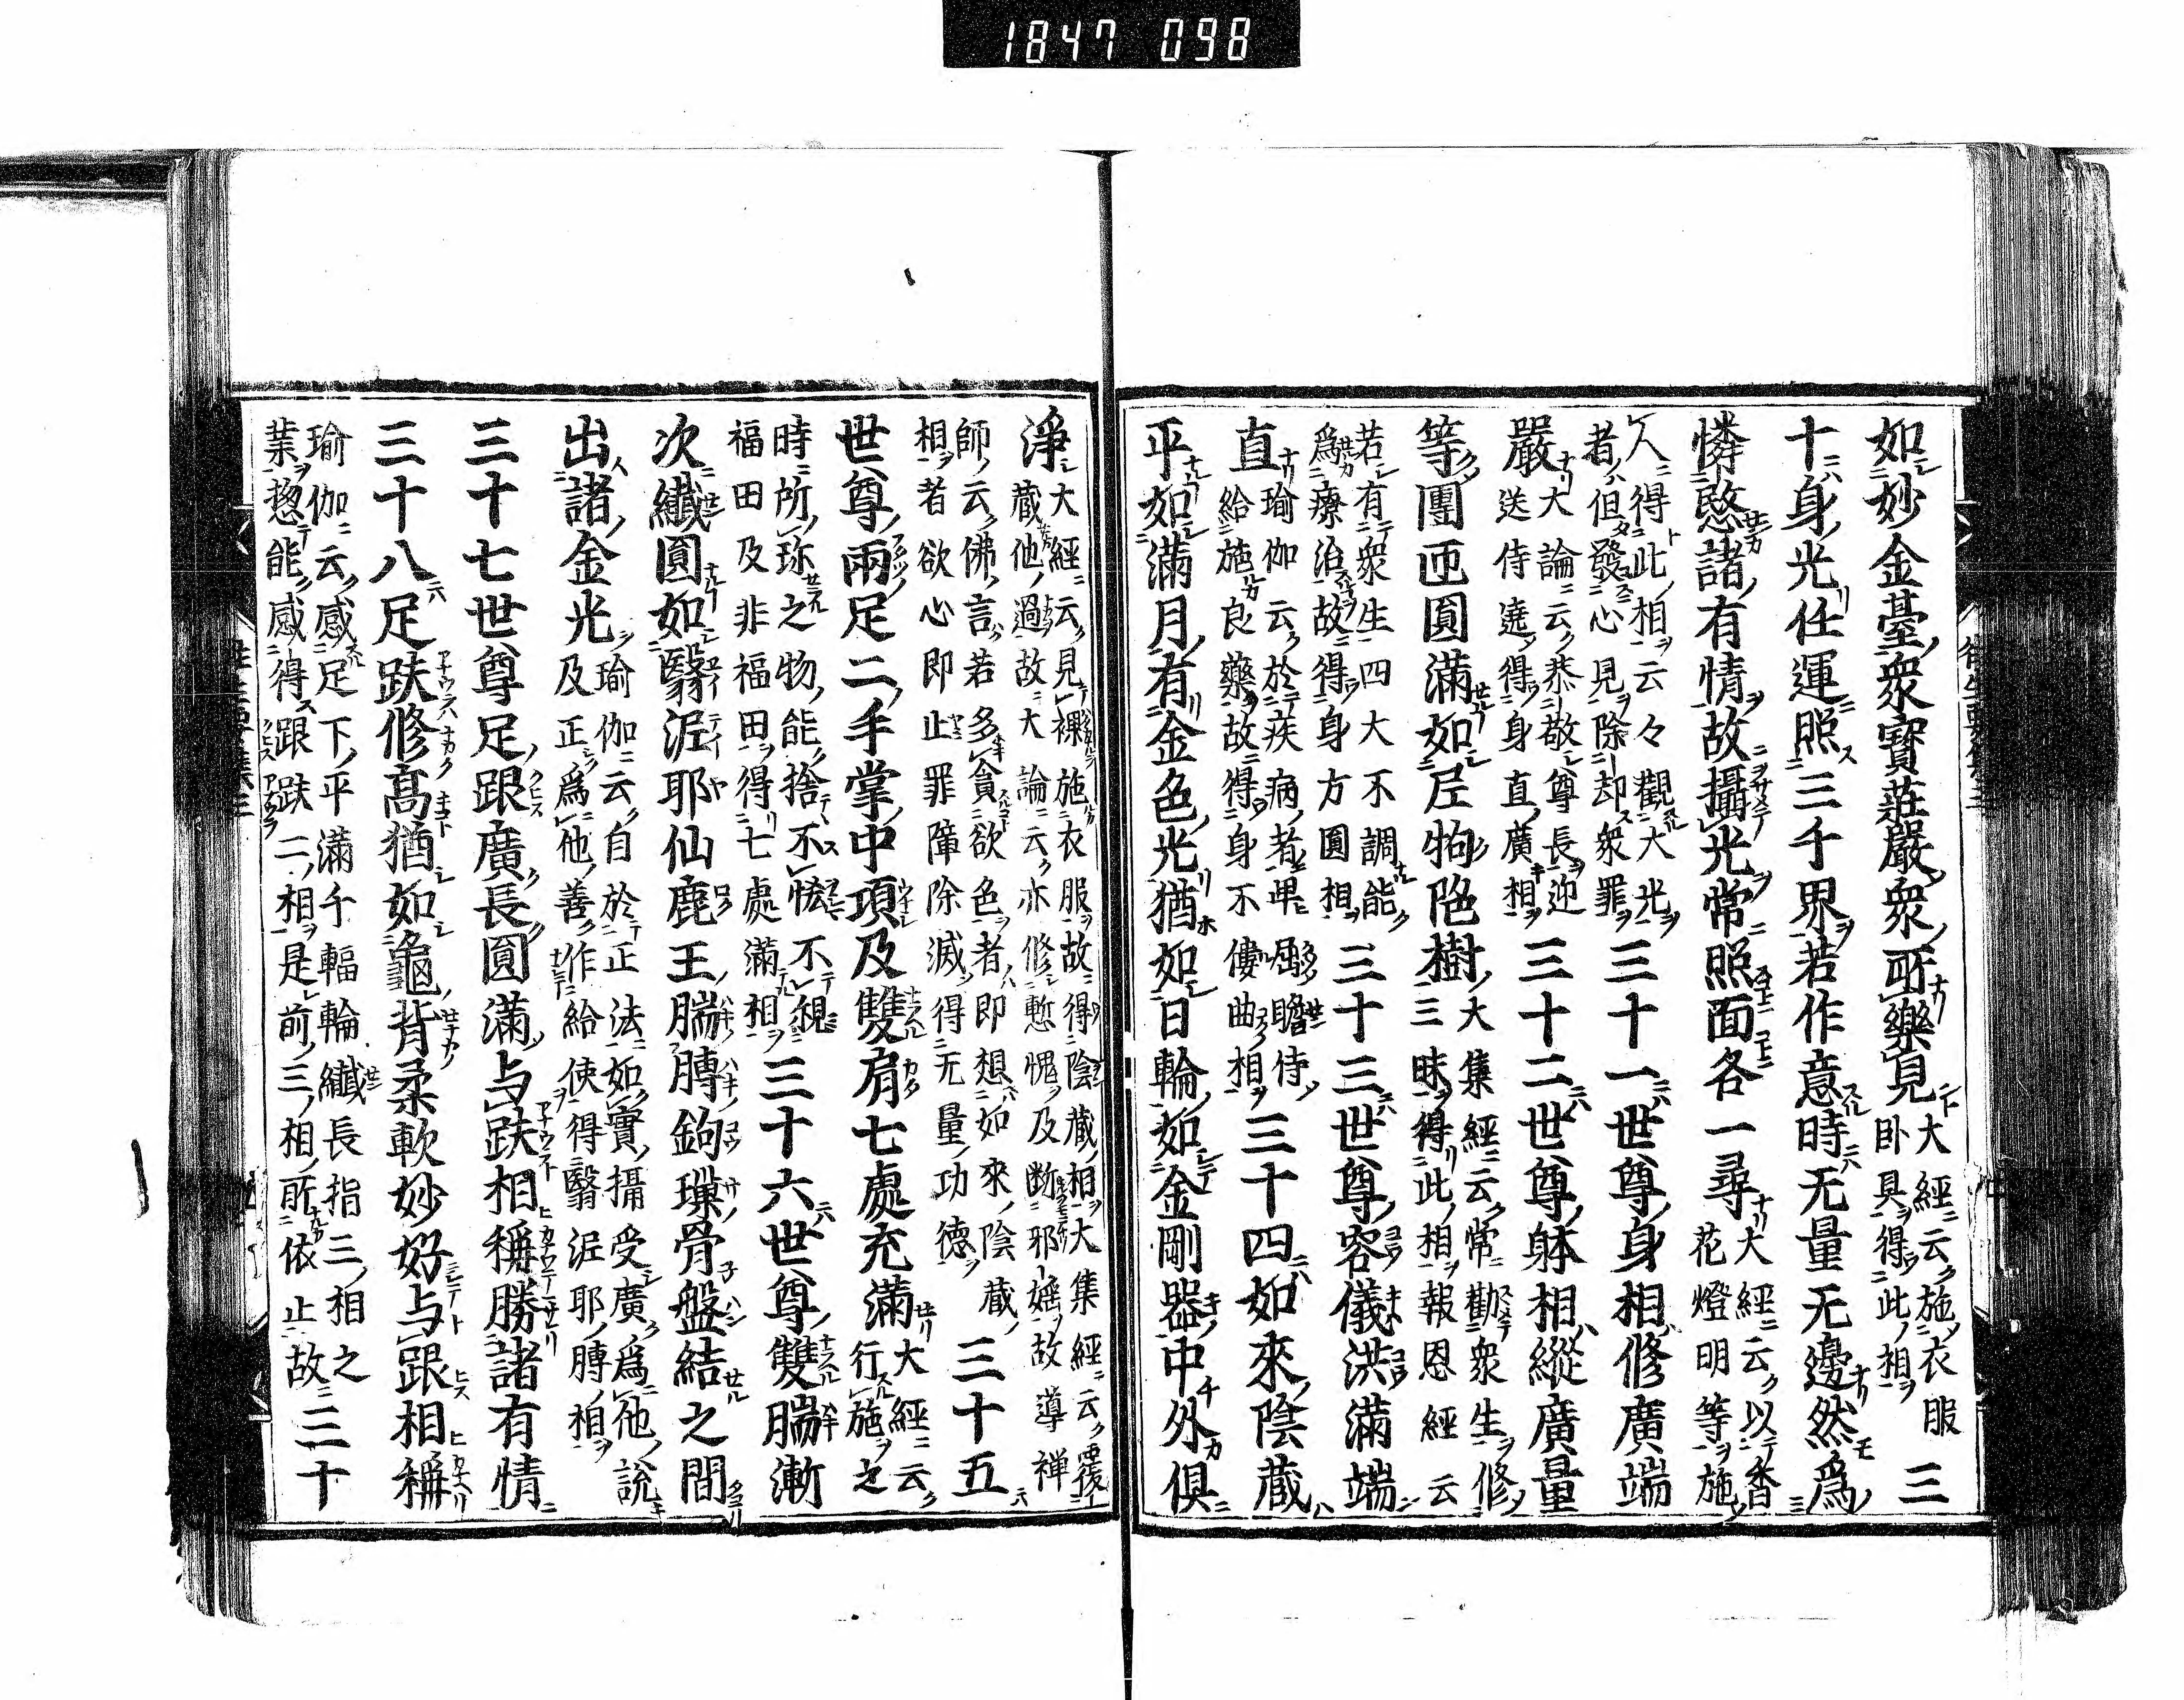 1847 098
如妙金臺衆寶莊嚴衆所樂見大經云施衣服卧具得此相三
十身光任運照三千界若作意時无量无邊然爲
憐愍諸有情故攝光常照面各一尋大經云以香花燈明等施
人得此相云々觀大光者但發心見除却衆罪三十一世尊身相修廣端
嚴大論云恭敬尊長迎送侍遶得身直廣相三十二世尊躰相縱廣量
等團迊圓滿如尼拘陁樹大集經云常勸衆生修三昧得此相報恩經云
若有衆生四大不調能爲療治故得身方圓相三十三世尊容儀洪滿端
直瑜伽云於疾病者卑屈瞻侍給施良藥故得身不僂曲相三十四如來陰藏
平如滿月有金色光猶如日輪如金剛器中外俱
淨大經云見裸施衣服故得陰藏相大集經云覆藏他過故大論云亦修慙愧及断邪婬故導禅
師云佛言若多貪欲色者即想如來陰藏相者欲心即止罪障除滅得无量功德三十五
世尊兩足二手掌中項及雙肩七處充滿大經云行施之
時所珎之物能捨不悋不視福田及非福田得七處滿相三十六世尊雙腨漸
次纖圓如翳泥耶仙鹿王腨膊鉤璅骨盤結之間
出諸金光瑜伽云自於正法如實攝受廣爲他說及正爲他善作給使得翳泥耶膊相
三十七世尊足跟廣長圓滿与趺相稱勝諸有情
三十八足趺修高猶如龜背柔軟妙好与跟相稱
瑜伽云感足下平滿千輻輪纖長指三相之業揔能感得跟趺二相是前三相所依止故三十